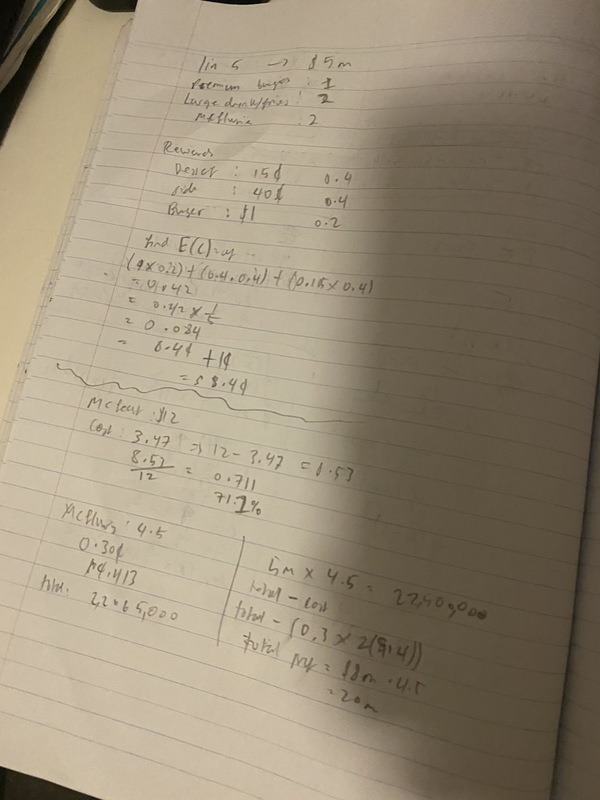 1 in 5 → $5m
Premium burger : 1
Large drink/fries : 2
Mcflurrie : 2
Rewards
Dessert : 15¢ 0.4
side : 40¢ 0.4
Burger : $1 0.2
find E(C) of
(1×0.2) + (0.4×0.4) + (0.15×0.4)
= 0.42
= 0.42 × 1/5
= 0.084
= 8.4¢ + 1¢
Mcfeast $12
Cost : 3.47 ⇒ 12 - 3.47 = 8.53
8.53/12 = 0.711
71.1%
Mcflurry : 4.5
0.30¢
5m × 4.5 =
total - cost
total - (0.3 × 2(9.4))
total
= 20m